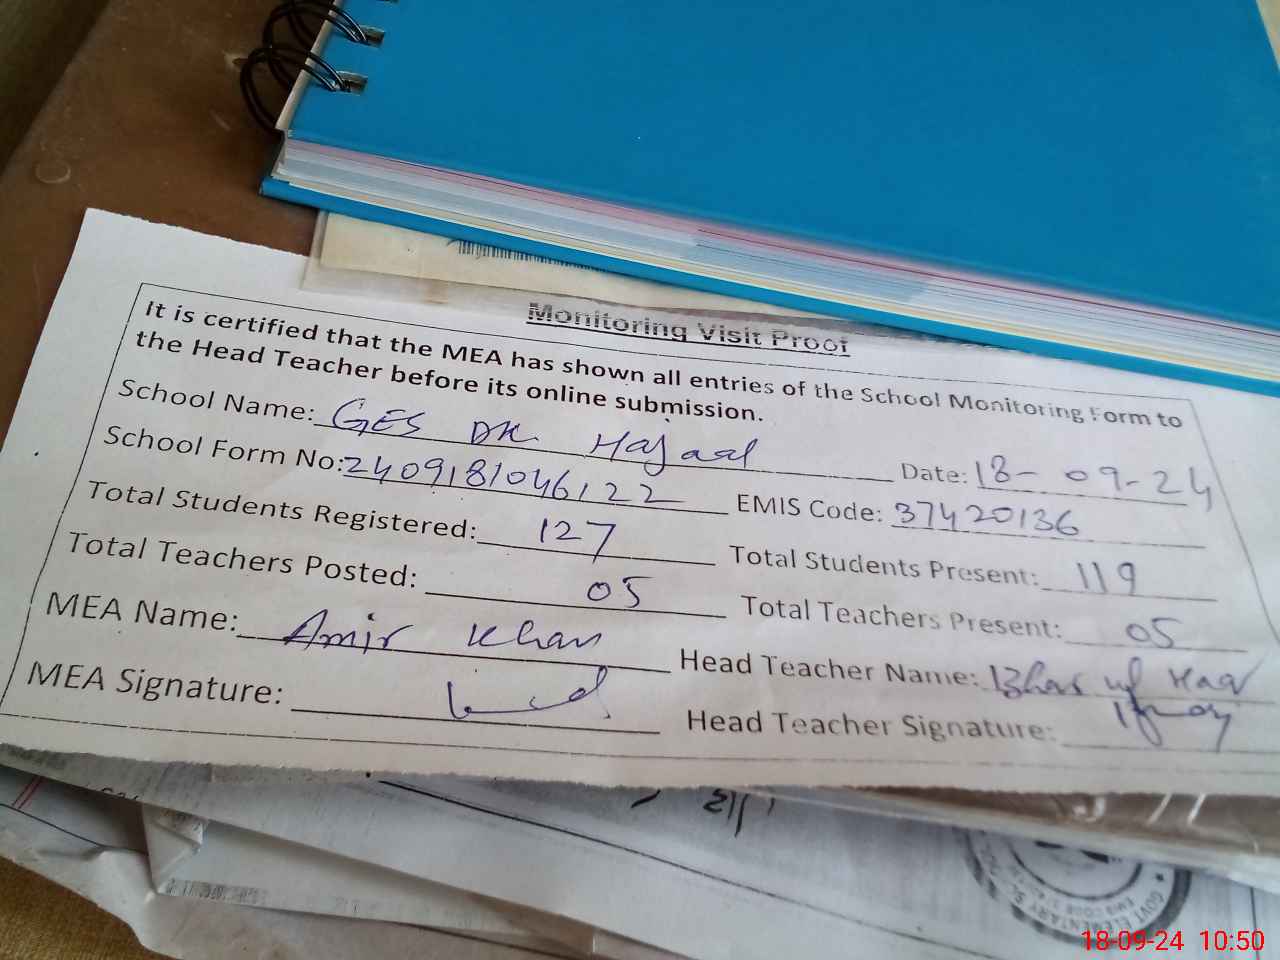 Monitoring Visit Proof
It is certified that the MEA has shown all entries of the School Monitoring Form to
the Head Teacher before its online submission.
School Name: GES DK. Hajaal Date: 18-09-24
School Form No: 2409181046122 EMIS Code: 37420136
Total Students Registered: 127 Total Students Present: 119
Total Teachers Posted: 05 Total Teachers Present: 05
MEA Name: Amir Khan Head Teacher Name:
MEA Signature: Head Teacher Signature:
GOVT ELEMENTARY
EMIS CODE
18-09-24 10:50